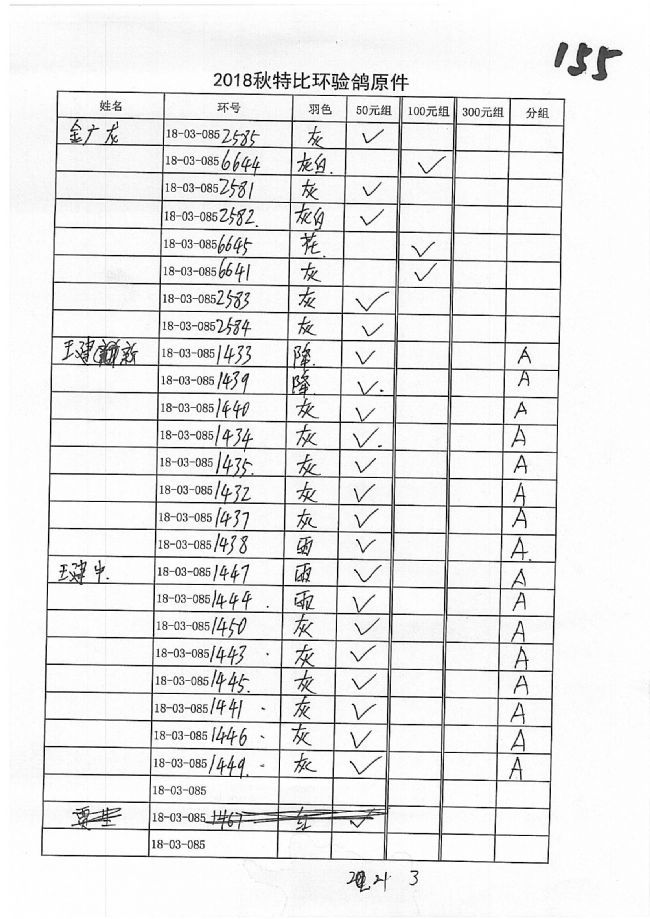 155
2018秋特比环验鸽原件
姓名 环号 羽色 50元组 100元组 300元组 分组
金广龙 18-03-085 2585 灰 ✓
18-03-085 6644 灰白. ✓
18-03-085 2581 灰 ✓
18-03-085 2582. 灰白 ✓
18-03-085 6645 花. ✓
18-03-085 6641 灰 ✓
18-03-085 2583 灰 ✓
18-03-085 2584 灰 ✓
王建新 18-03-085 1433 降. ✓ A
18-03-085 1439 降. ✓. A
18-03-085 1440 灰 ✓ A
18-03-085 1434 灰 ✓. A
18-03-085 1435. 灰 ✓ A
18-03-085 1432 灰 ✓ A
18-03-085 1437 灰 ✓ A
18-03-085 1438 雨 ✓ A.
王建中. 18-03-085 1447 雨 ✓ A
18-03-085 1444. 雨 ✓ A
18-03-085 1450 灰 ✓ A
18-03-085 1443 · 灰 ✓ A
18-03-085 1445. 灰 ✓ A
18-03-085 1441 · 灰 ✓ A
18-03-085 1446 · 灰 ✓ A
18-03-085 1449. · 灰 ✓ A
18-03-085
18-03-085 1467 红 ✓
18-03-085
21 3